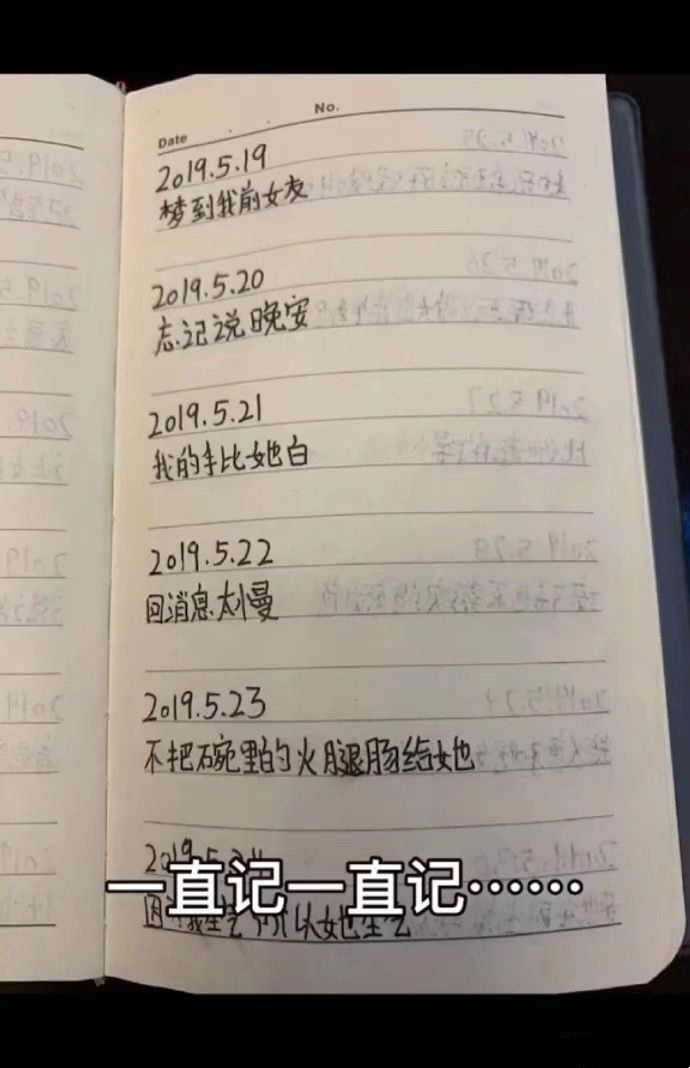 No.
Date
2019.5.19
梦到我前女友
2019.5.20
忘记说晚安
2019.5.21
我的手比她白
2019.5.22
回消息太慢
2019.5.23
不把碗里的火腿肠给她
2019.5.24
一直记一直记……
因 我生气 所以她生气